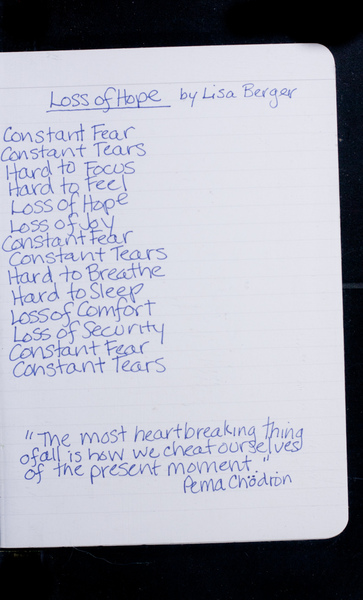 Loss of Hope by Lisa Berger
Constant Fear
Constant Tears
Hard to Focus
Hard to Feel
Loss of Hope
Loss of Joy
Constant Fear
Constant Tears
Hard to Breathe
Hard to Sleep
Loss of Comfort
Loss of Security
Constant Fear
Constant Tears
"The most heartbreaking thing
of all is how we cheat ourselves
of the present moment."
Pema Chödrön